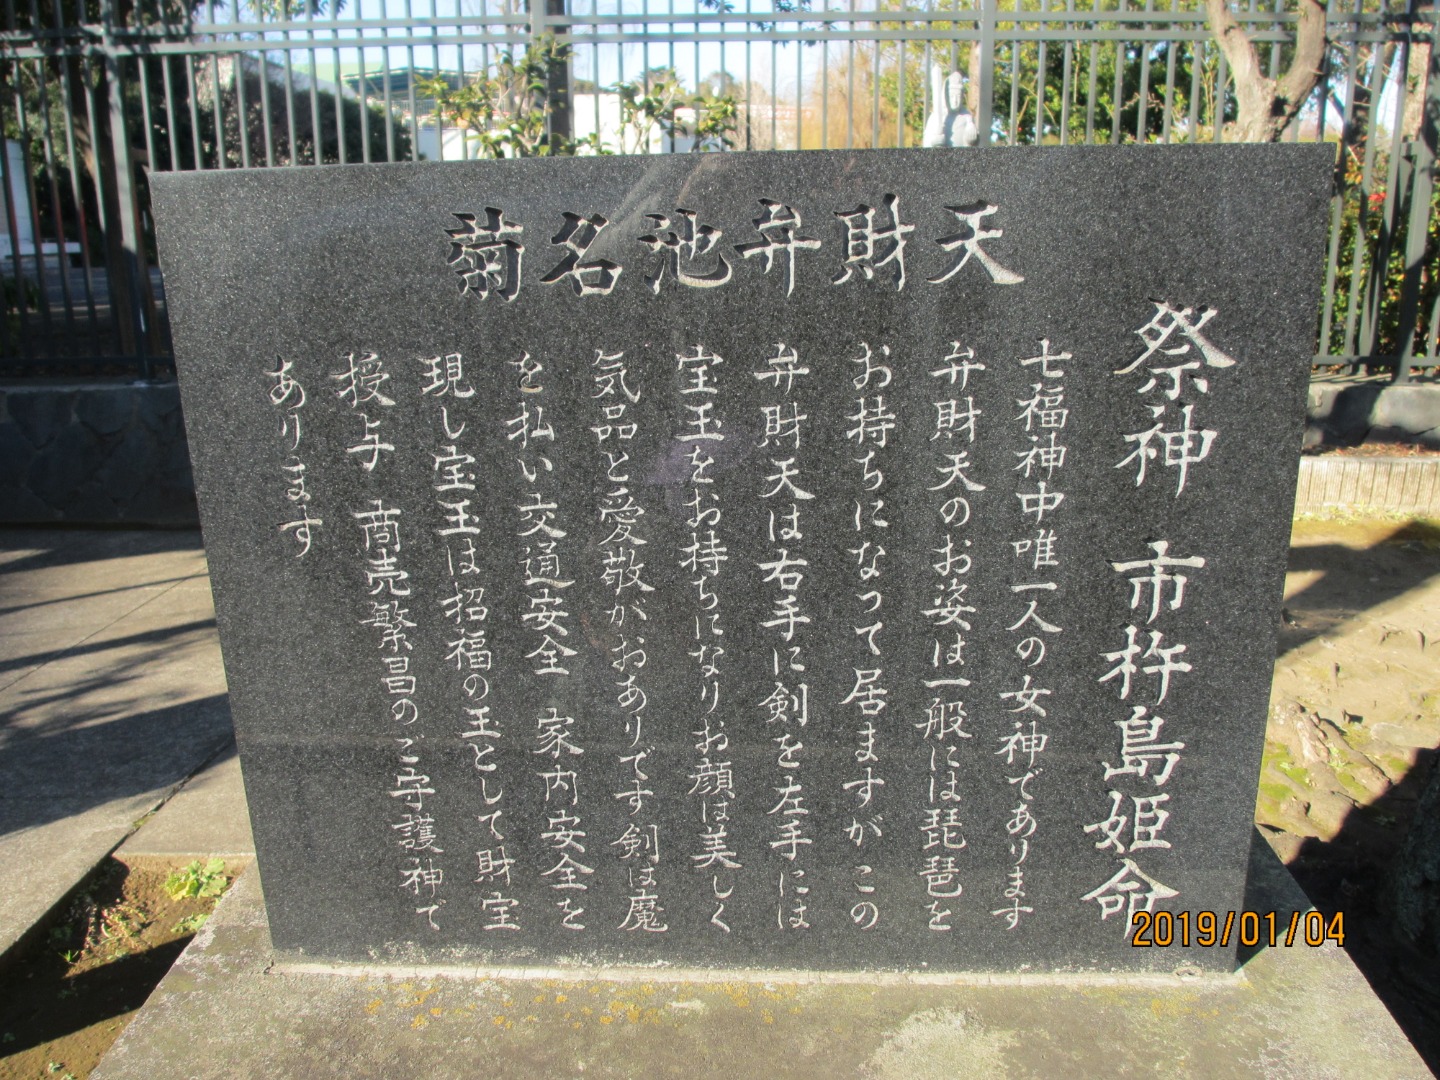 菊名池弁財天
祭神 市杵島姫命
七福神中唯一人の女神であります
弁財天のお姿は一般には琵琶を
お持ちになって居ますがこの
弁財天は右手に剣を左手には
宝玉をお持ちになりお顔は美しく
気品と愛敬がおありです剣は魔
を払い交通安全 家内安全を
現し宝玉は招福の玉として財宝
授与 商売繁昌のご守護神で
あります
2019/01/04